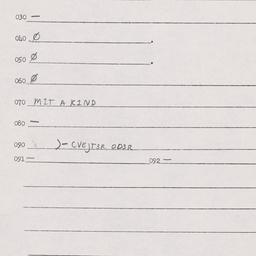 030 —
040 Ø .
050 Ø .
060 Ø
070 MIT A KIND
080 —
090
091 — 092 —